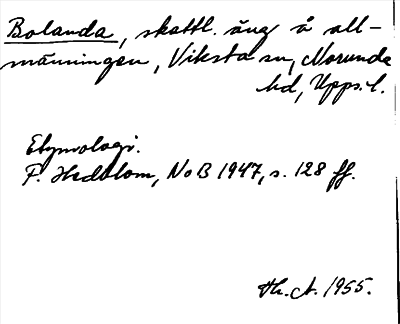 Bolanda, skattl. äng å all-
männingen, Viksta sn, Norunda
hd, Upps. l.
Etymologi.
F. Hedblom, NoB 1947, s. 128 ff.
Th. A. 1955.